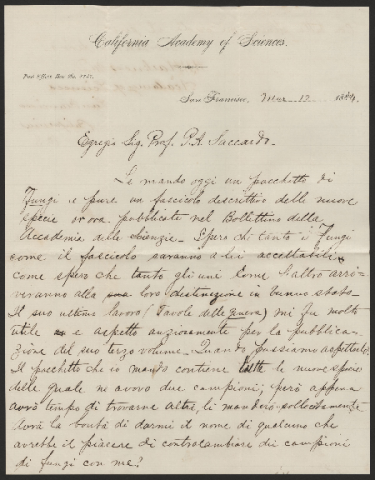 California Academy of Sciences.
Post Office Box No.
San Francisco, Mar. 12 1884
Egregio Sig. Prof. P. A. Saccardo.
Le mando oggi un pacchetto di
Fungi e pure un fascicolo descrittivo delle nuove
specie or ora pubblicate nel Bollettino della
Accademia delle Scienzie. Spero che tanto i Fungi
come il fascicolo saranno a lei accettabili
come spero che tanto gli uni come l'altro arri-
veranno alla loro destinazione in buono stato.
Il suo ultimo lavoro (Tavole delle genera) mi fu molto
utile e aspetto anziosamente per la pubblica-
zione del suo terzo volume. Quando possiamo aspettarlo?
Il pacchetto che io mando contiene tutte le nuove specie
delle quale ne avevo due campioni; però appena
avrò tempo di trovarne altri, li manderò sollecitamente,
Avrà la bontà di darmi il nome di qualcuno che
avrebbe il piacere di contracambiare dei campioni
di fungi con me?